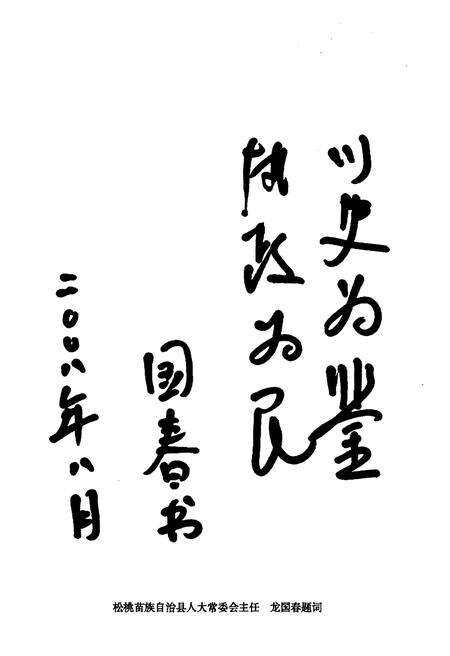 以史为鉴
执政为民
国春书
二〇〇八年八月
松桃苗族自治县人大常委会主任 龙国春题词